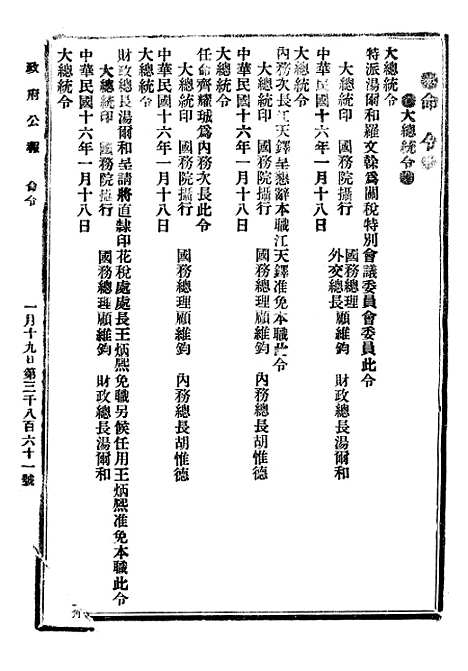 命令
大總統令
大總統令
特派湯爾和羅文榦爲關稅特別會議委員會委員此令
大總統印 國務院攝行
中華民國十六年一月十八日
國務總理 外交總長 顧維鈞 財政總長湯爾和
大總統令
內務次長江天鐸呈懇辭本職江天鐸准免本職此令
大總統印 國務院攝行
中華民國十六年一月十八日
國務總理顧維鈞 內務總長胡惟德
大總統令
任命齊耀珹爲內務次長此令
大總統印 國務院攝行
中華民國十六年一月十八日
國務總理顧維鈞 內務總長胡惟德
大總統令
財政總長湯爾和呈請將直隸印花稅處處長王炳熙免職另候任用王炳熙准免本職此令
大總統印 國務院攝行
中華民國十六年一月十八日
國務總理顧維鈞 財政總長湯爾和
大總統令
政府公報 命令 一月十九日第三千八百六十一號